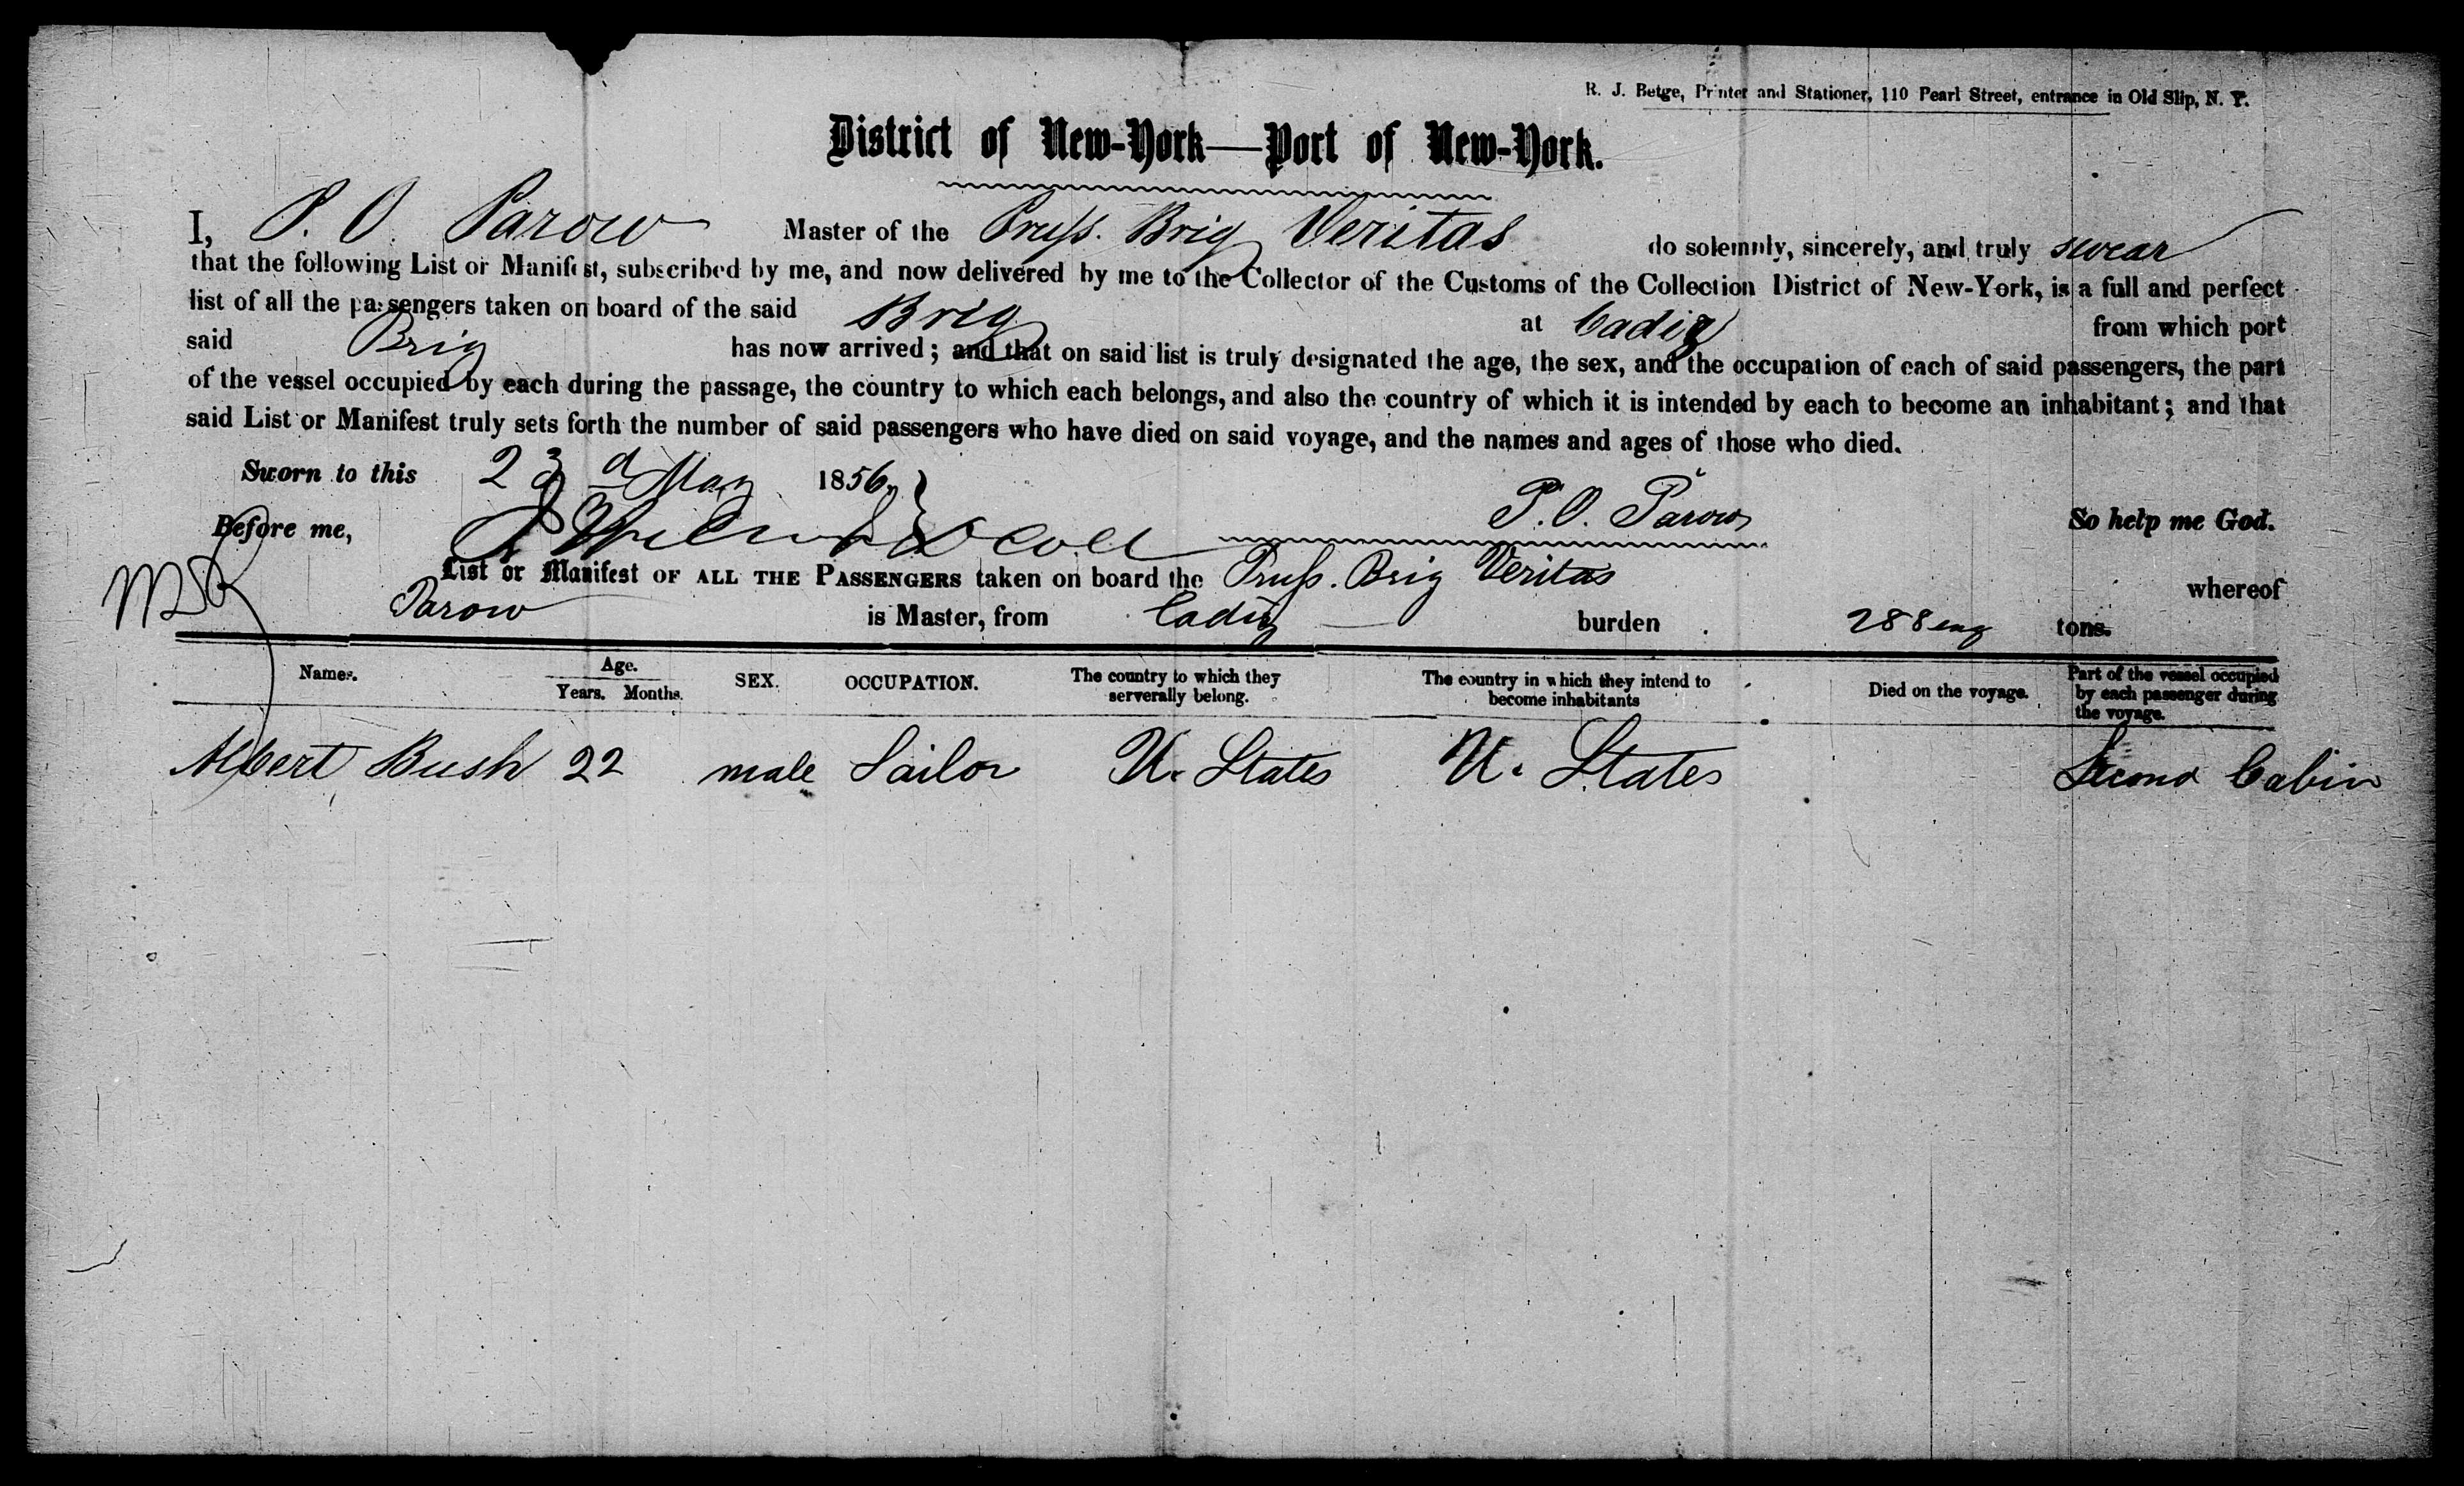 R. J. Betge, Printer and Stationer, 110 Pearl Street, entrance in Old Slip, N. Y.
District of New-York—Port of New-York.
I, P. O. Parow Master of the Pruss. Brig Veritas do solemnly, sincerely, and truly swear
that the following List or Manifest, subscribed by me, and now delivered by me to the Collector of the Customs of the Collection District of New-York, is a full and perfect
list of all the passengers taken on board of the said Brig at Cadiz from which port
said Brig has now arrived; and that on said list is truly designated the age, the sex, and the occupation of each of said passengers, the part
of the vessel occupied by each during the passage, the country to which each belongs, and also the country of which it is intended by each to become an inhabitant; and that
said List or Manifest truly sets forth the number of said passengers who have died on said voyage, and the names and ages of those who died.
Sworn to this 23d May 1856
Before me, P. O. Parow So help me God.
List or Manifest OF ALL THE PASSENGERS taken on board the Pruss. Brig Veritas whereof
Parow is Master, from Cadiz burden 288 eng tons.
Names. Age. Years. Months. SEX. OCCUPATION. The country to which they serverally belong. The country in which they intend to become inhabitants Died on the voyage. Part of the vessel occupied by each passenger during the voyage.
Albert Bush 22 male Sailor U. States U. States Second Cabin